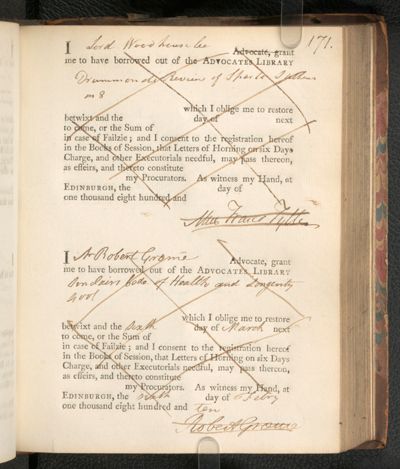 171.
I Lord Woodhouselee Advocate, grant
me to have borrowed out of the ADVOCATES LIBRARY
Drummonds Review of Sparta
in 8
which I oblige me to restore
betwixt and the day of next
to come, or the Sum of
in case of Failzie; and I consent to the registration hereof
in the Books of Session, that Letters of Horning on six Days
Charge, and other Executorials needful, may pass thereon,
as effeirs, and thereto constitute
my Procurators. As witness my Hand, at
EDINBURGH, the day of
one thousand eight hundred and
Fraser Tytler
I A Robert Græme Advocate, grant
me to have borrowed out of the ADVOCATES LIBRARY
Sinclairs Code of Health and Longevity
4 vol
which I oblige me to restore
betwixt and the sixth day of March next
to come, or the Sum of
in case of Failzie; and I consent to the registration hereof
in the Books of Session, that Letters of Horning on six Days
Charge, and other Executorials needful, may pass thereon,
as effeirs, and thereto constitute
my Procurators. As witness my Hand, at
EDINBURGH, the sixth day of Febry
one thousand eight hundred and ten
Robert Græme